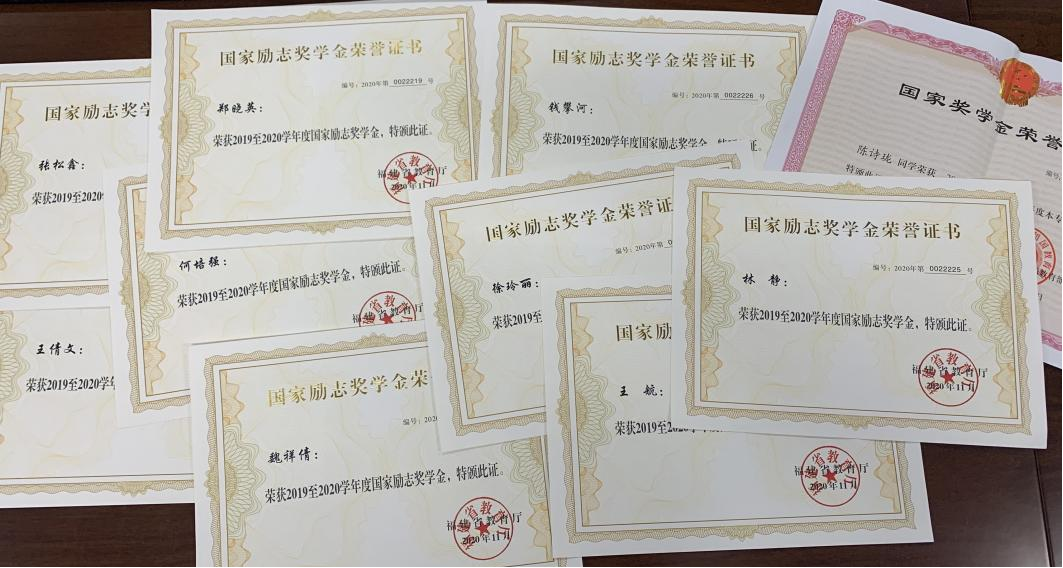 国家励志奖学
张松鑫:
荣获2019至2020
国家励志奖学金荣誉证书
编号:2020年第 0022219 号
郑晓英:
荣获2019至2020学年度国家励志奖学金,特颁此证。
福建省教育厅
2020年11月
国家励志奖学金荣誉证书
编号:2020年第 0022226 号
钱攀河:
荣获2019至2020学年度国家励志奖学金,特
国家奖学金荣誉
编号
陈诗珑 同学荣获
特颁此
何培强:
荣获2019至2020学年度国家励志奖学金,特颁此证。
福建省教育厅
国家励志奖学金荣誉证
编号:2020年第
徐玲丽:
荣获2019至
国家励志奖学金荣誉证书
编号:2020年第 0022225 号
林 静:
荣获2019至2020学年度国家励志奖学金,特颁此证。
福建省教育厅
2020年11月
王倩文:
荣获2019至2020学年
国家励志奖学金
编号:202
魏祥倩:
荣获2019至2020学年度国家励志奖学金,特颁此证。
福建省教育厅
2020年11月
国家励
王 航:
荣获2019至2020学年
福建省教育厅
2020年11月